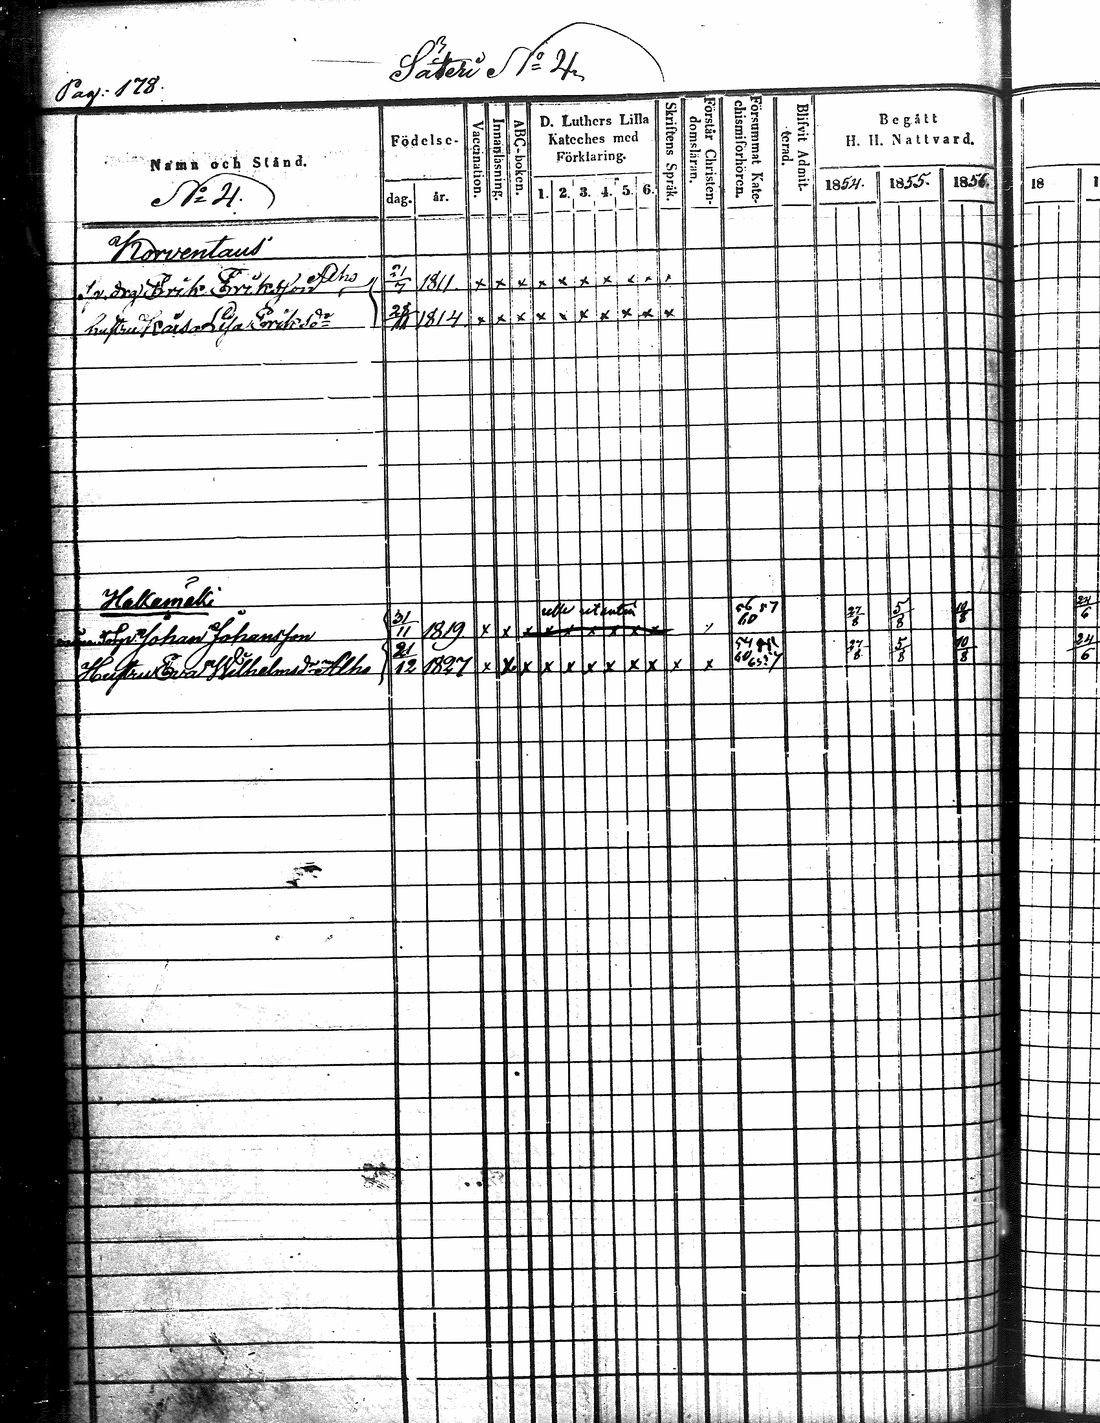 Pag. 178. Säteri № 4
Namn och Stånd.
№ 4.
Födelse-
dag. år.
Vaccination.
Innanläsning.
ABC-boken.
D. Luthers Lilla
Kateches med
Förklaring.
1. 2. 3. 4. 5. 6.
Skriftens Språk.
Förstår Christen-
domsläran.
Försummat Kate-
chismiförhören.
Blifvit Admit-
terad.
Begått
H. H. Nattvard.
1854. 1855. 1856.
18
Korventaus
Erik Eriksson Alho 21/7 1811 x x x x x x x x x x
hustru Kaisa Lisa Eriksdr 1814 x x x x x x x x x x
Hakamäki
56 57
60
Johan Johansson 31/11 1819 x x x x x x x x x 27/8 5/8 10/8 24/6
Hustru Eva Wilhelmsdr Alho 21/12 1827 x x x x x x x x x x x 27/8 5/8 10/8 24/6